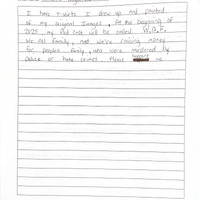 I have t-shirts I drew up and painted
of my original images, At the beginning of
2025 my first shirt will be called W.A.F.
We All Family, and we're raising money
for people family, who were murdered by
police or hate crimes. Please support me